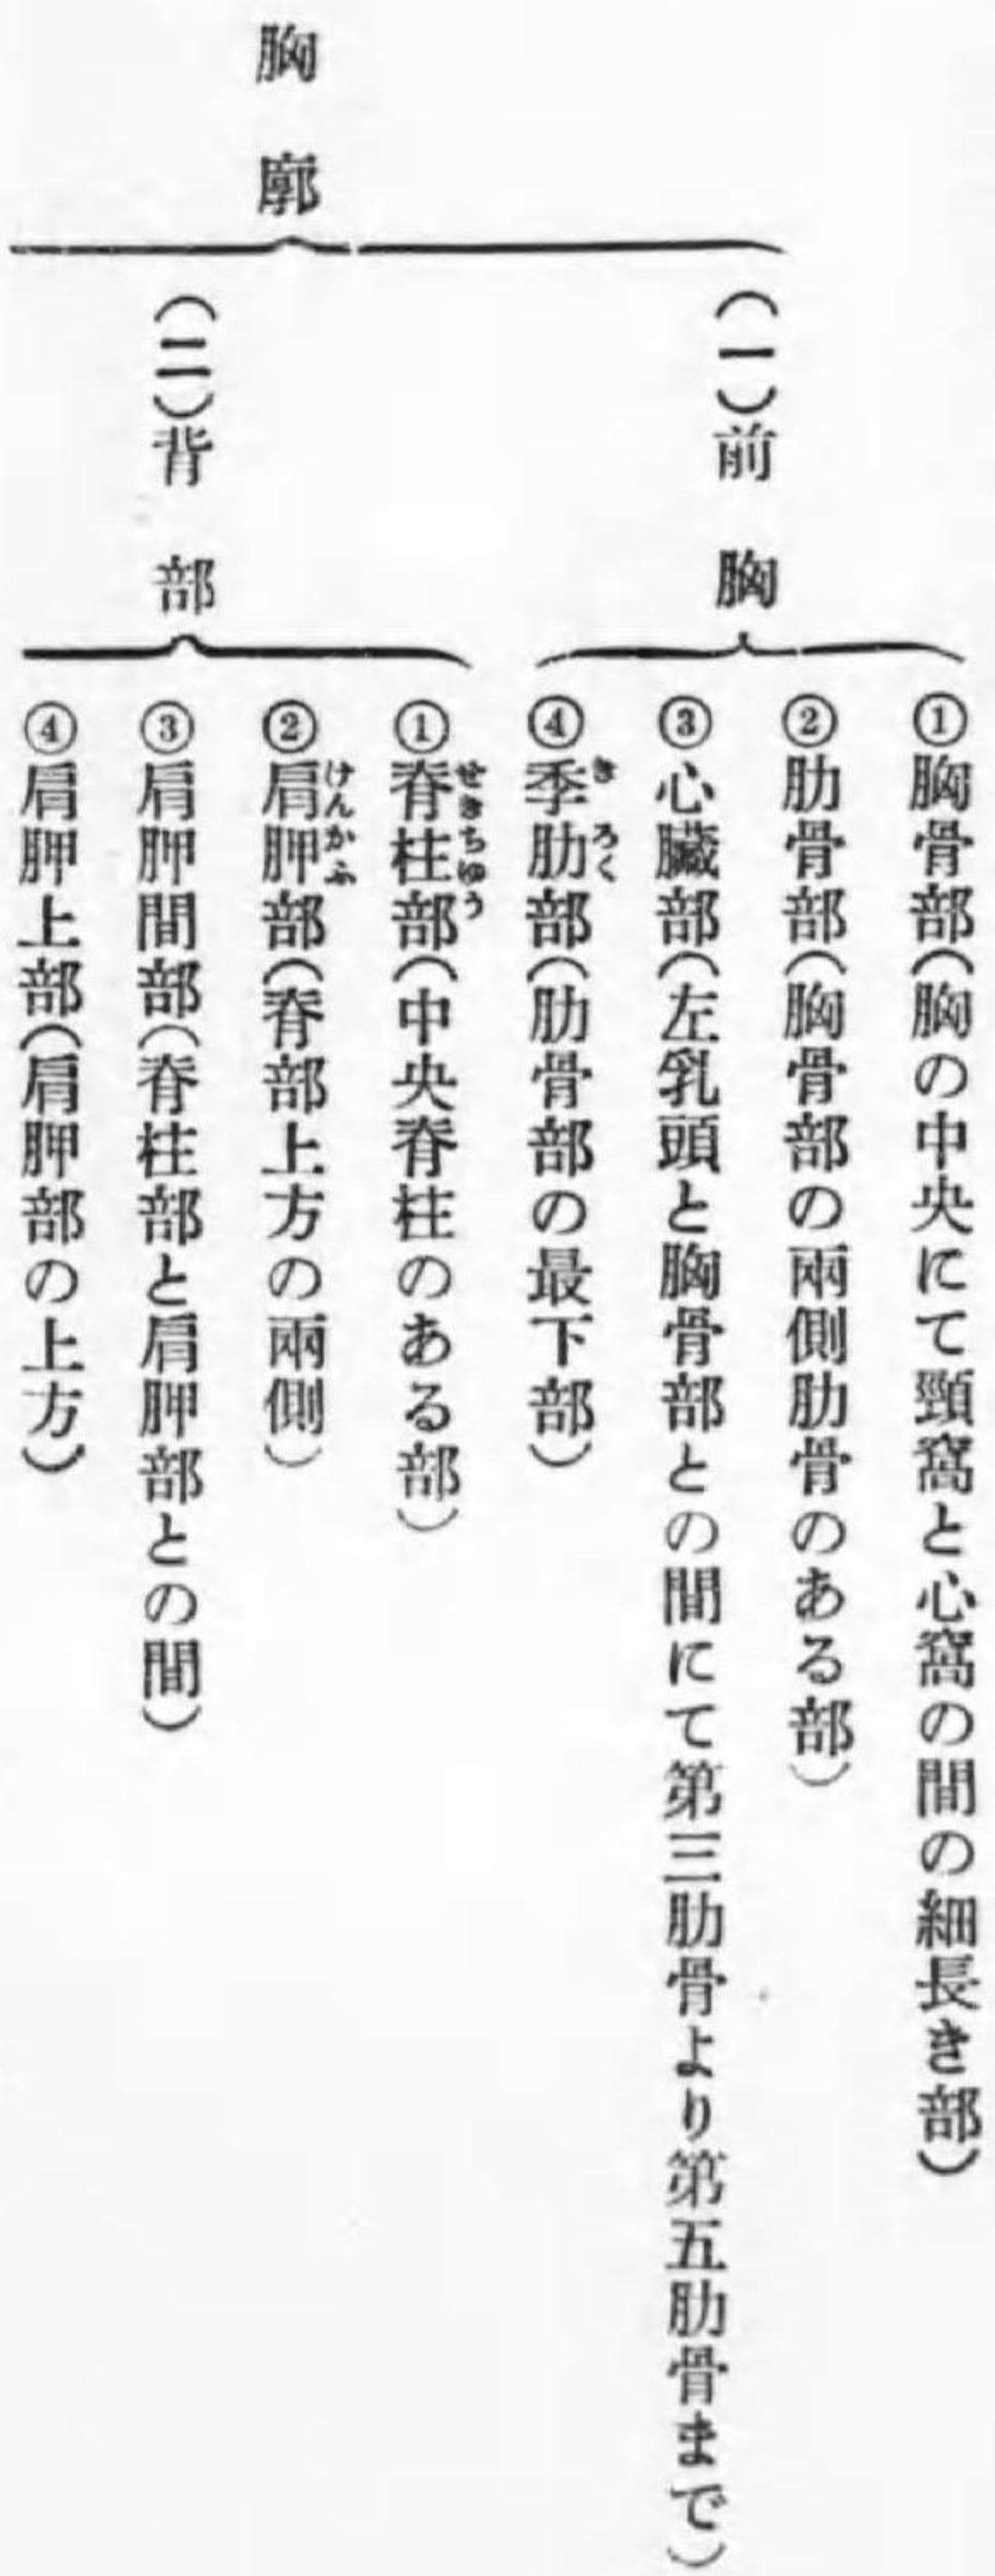 胸廓
(一)前胸
①胸骨部(胸の中央にて頸窩と心窩の間の細長き部)
②肋骨部(胸骨部の兩側肋骨のある部)
③心臟部(左乳頭と胸骨部との間にて第三肋骨より第五肋骨まで)
④季肋部(肋骨部の最下部)
きろく
(二)背部
①脊柱部(中央脊柱のある部)
せきちゆう
②肩胛部(脊部上方の兩側)
けんかふ
③肩胛間部(脊柱部と肩胛部との間)
④肩胛上部(肩胛部の上方)